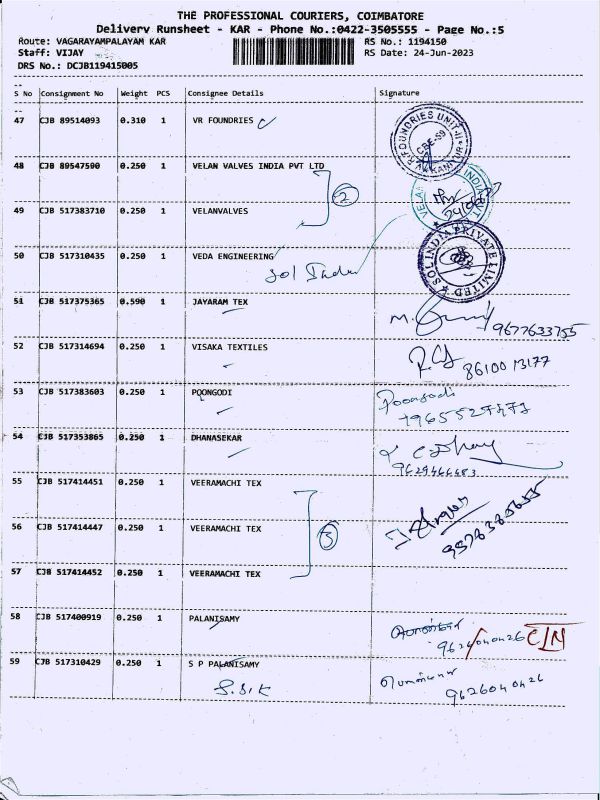 THE PROFESSIONAL COURIERS, COIMBATORE
Delivery Runsheet - KAR - Phone No.:0422-3505555 - Page No.:5
Route: VAGARAYAMPALAYAM KAR RS No.: 1194150
Staff: VIJAY RS Date: 24-Jun-2023
DRS No.: DCJB119415005
S No Consignment No Weight PCS Consignee Details Signature
47 CJB 89514093 0.310 1 VR FOUNDRIES
48 CJB 89547590 0.250 1 VELAN VALVES INDIA PVT LTD
2
49 CJB 517383710 0.250 1 VELANVALVES
50 CJB 517310435 0.250 1 VEDA ENGINEERING
SOL INDIA PRIVATE LIMITED
51 CJB 517375365 0.590 1 JAYARAM TEX
9677633755
52 CJB 517314694 0.250 1 VISAKA TEXTILES
86100 13177
53 CJB 517383603 0.250 1 POONGODI Poongodi
54 CJB 517353865 0.250 1 DHANASEKAR
9629466483
55 CJB 517414451 0.250 1 VEERAMACHI TEX
56 CJB 517414447 0.250 1 VEERAMACHI TEX
3
57 CJB 517414452 0.250 1 VEERAMACHI TEX
58 CJB 517400919 0.250 1 PALANISAMY
9626040426
59 CJB 517310429 0.250 1 S P PALANISAMY
S.S.K 9626040426